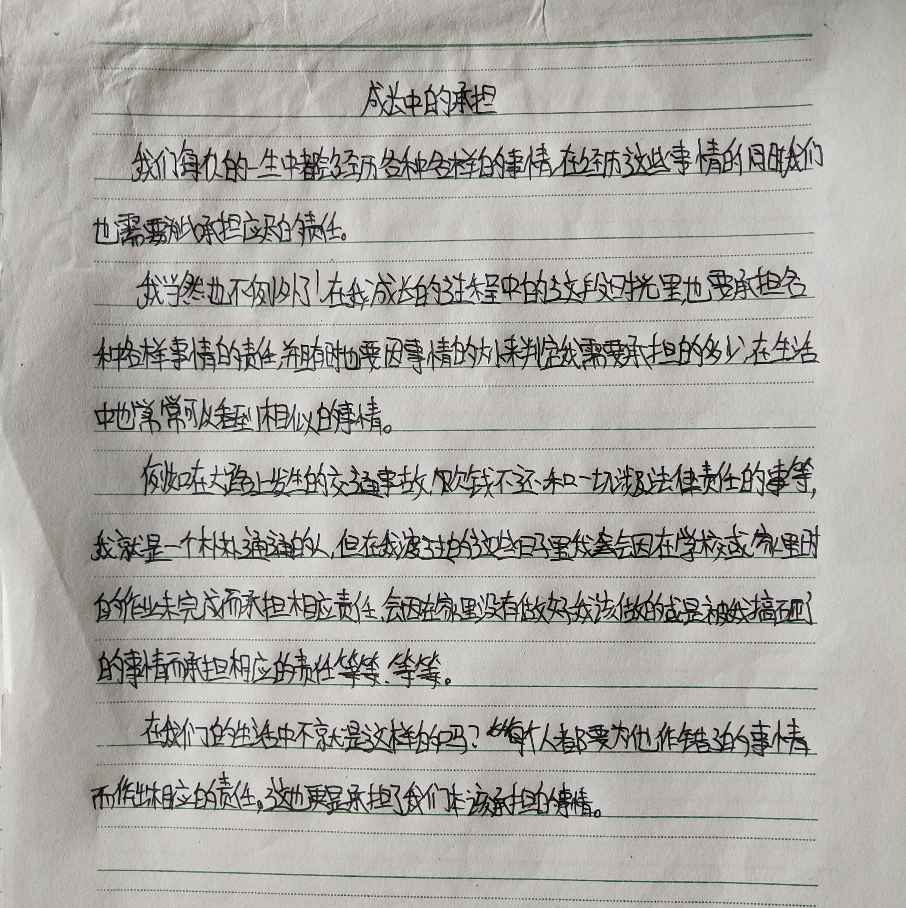 成长中的承担
我们每个人的一生中都会经历各种各样的事情,在经历这些事情的同时我们
也需要承担应尽的责任。
我当然也不例外了,在我成长的过程中的这段时光里,也要承担各
种各样事情的责任,并且有时也要因事情的大小来判定我需要承担的多少,在生活
中也常常可以看到相似的事情。
例如在大路上发生的交通事故,欠钱不还和一切涉及法律责任的事等,
我就是一个朴朴通通的人,但在我渡过的这些日子里我会因在学校或家里时
的作业未完成而承担相应责任,会因在家里没有做好我该做的或是被我搞砸了
的事情而承担相应的责任等等、等等。
在我们的生活中不就是这样的吗?每个人都要为他作错的事情
而作出相应的责任,这也更是承担了我们本该承担的事情。